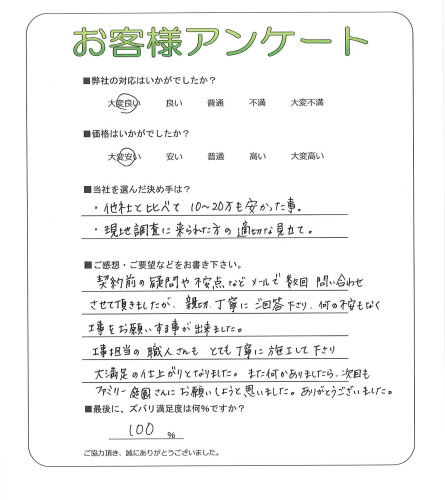 お客様アンケート
■弊社の対応はいかがでしたか?
大変良い 良い 普通 不満 大変不満
■価格はいかがでしたか?
大変安い 安い 普通 高い 大変高い
■当社を選んだ決め手は?
・他社と比べて 10〜20万も安かった事。
・現地調査に来られた方の適切な見立て。
■ご感想・ご要望などをお書き下さい。
契約前の疑問や不安点など メールで数回 問い合わせ
させて頂きましたが、親切、丁寧に ご回答下さり、何の不安もなく
工事をお願いする事が出来ました。
工事担当の職人さんも とても丁寧に施工して下さり
大満足の仕上がりとなりました。また何かありましたら、次回も
ファミリー庭園さんにお願いしようと思いました。ありがとうございました。
■最後に、ズバリ満足度は何%ですか?
100 %
ご協力頂き、誠にありがとうございました。